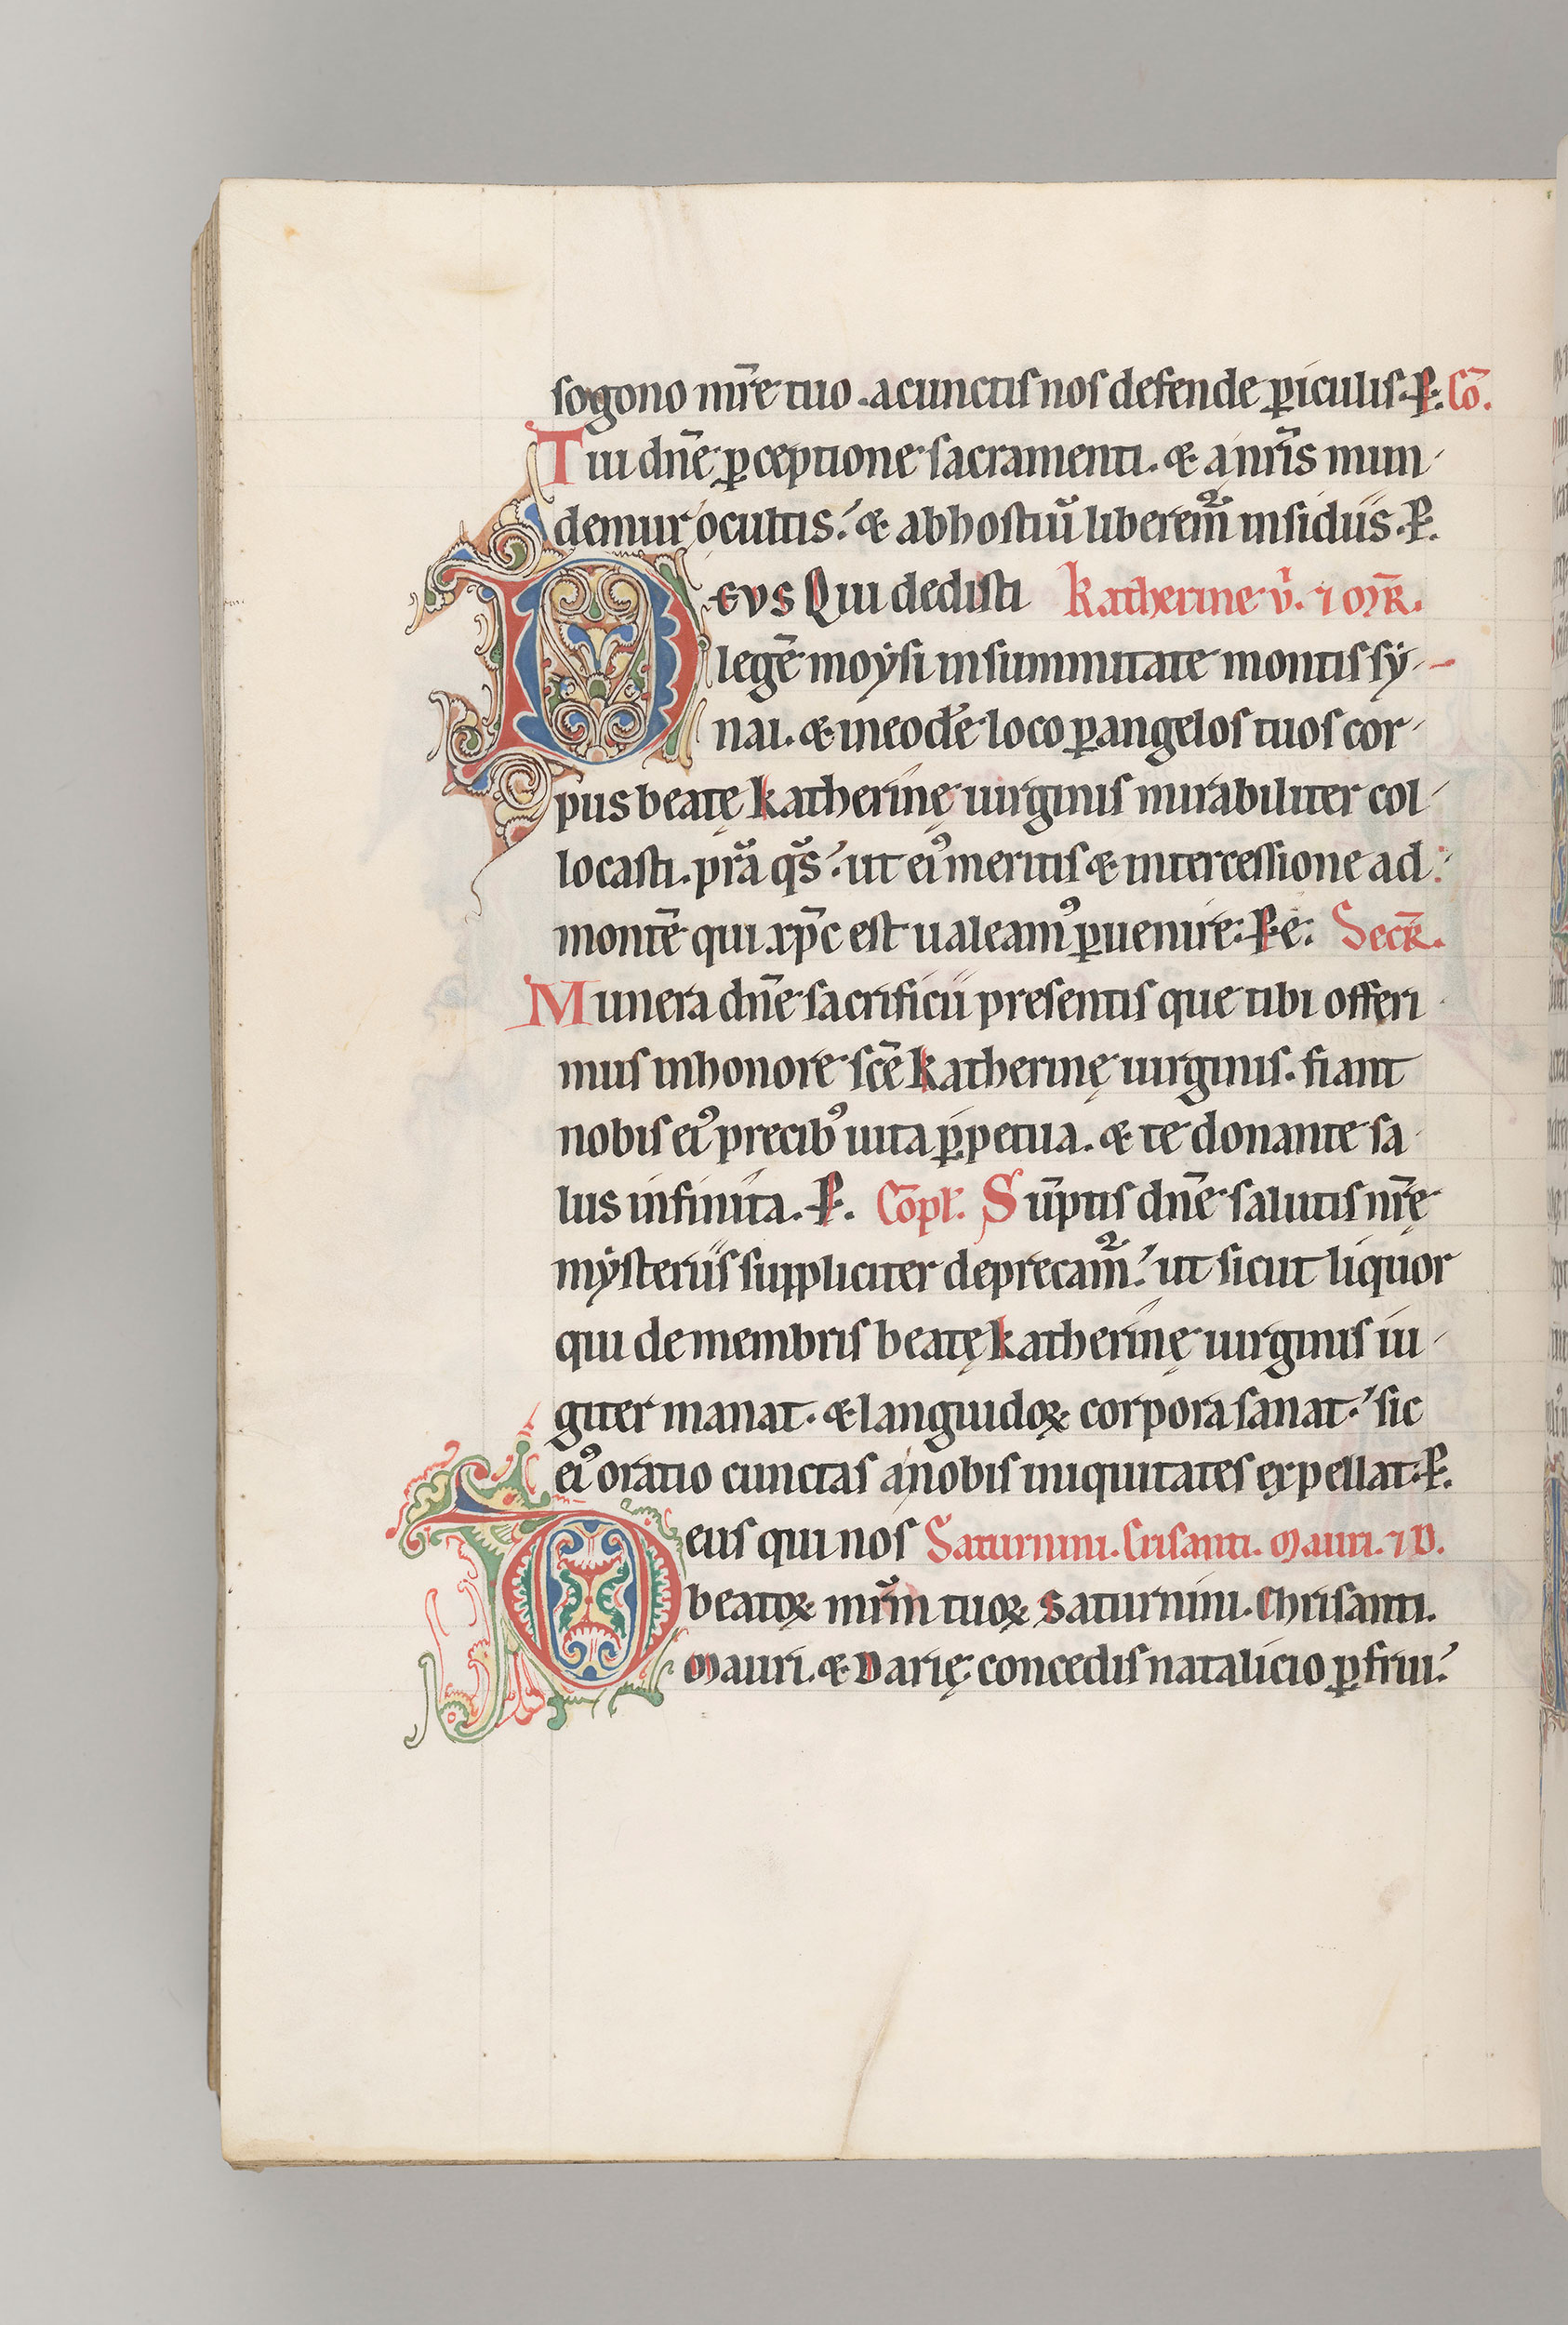 sogono mr̄e tuo. a cunctis nos defende ꝑiculis. P̶. Cō.
Tui dn̄e ꝑceptione sacramenti. & a nr̄is mun-
demur ocultis. & ab hostiū liberem᷑ insidiis. P̶.
EVS Qui dedisti Katherine v̄. ⁊ MR̄.
legē moysi in summitate montis sy-
nai. & in eodē loco ꝑ angelos tuos cor-
pus beatę katherinę uirginis mirabiliter col-
locasti. pr̄a qs̄. ut ei᷒ meritis & intercessione ad
montē qui xp̄c est ualeam᷒ ꝑuenire. P̶. e. Secr̄.
Munera dn̄e sacrificii presentis que tibi offeri
mus in honore scē katherinę uirginis. fiant
nobis ei᷒ precib᷒ uita ꝑpetua. & te donante sa
lus infinita. P̶. Cōpl̄. Sūptis dn̄e salutis nr̄ę
mysteriis suppliciter deprecam᷑. ut sicut liquor
qui de membris beatę katherinę uirginis iu-
giter manat. & languidoꝝ corpora sanat. sic
ei᷒ oratio cunctas a nobis iniquitates expellat. P̶.
eus qui nos Saturnini. Crisanti. Mauri. ⁊ D.
beatoꝝ mr̄m tuoꝝ Saturnini. Chrisanti.
Mauri. & Darię concedis natalicio ꝑfrui.